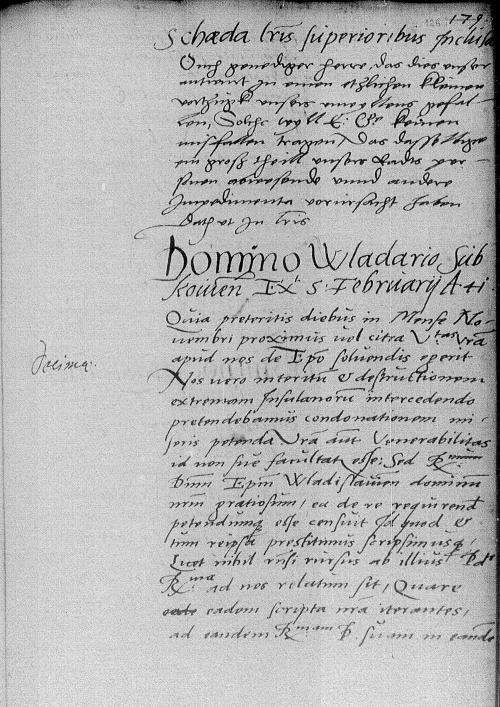 126 179.
Schæda lr̄is superioribus Inclusa
Auch genediger herre, das dies unser
antwurt In einen etzlichen kleinen
vortzugk unsers meyltens gefal
len, Solchs wyll E: Ehe keinen
misfallen tragen, Das dasselbige
ein groß theill unsers Radts per
sonen abwesende unnd andere
Impedimenta vorursacht haben
Dat ut In lr̄is
Domino Wladario Sub
kouien̄ Ex 5 February A 41
Quia preteritis diebus in Mense No
uembri proximus uel citra V: tas Vr̄a
apud nos de Ep̄o soluendis egerit
Nos uero interitū & destructionem
extremam Insulanorū intercedendo
pretendebamus condonationem mi
seris petenda Vr̄a aut Venerabilitas
id non sue facultat esse: Sed R mam
Dnm Ep̄m Wladislauien dominū
nr̄m gratiosum, ea de re requirend
petendumq esse censuit Id quod &
tum reipsa prestitimus scripsimusq,
Licet nihil nisi rursus ab illius P
R ma ad nos relatum sit, Quare
eadem scripta nr̄a iterantes,
ad eandem R mam P. suam in eande
Decima.